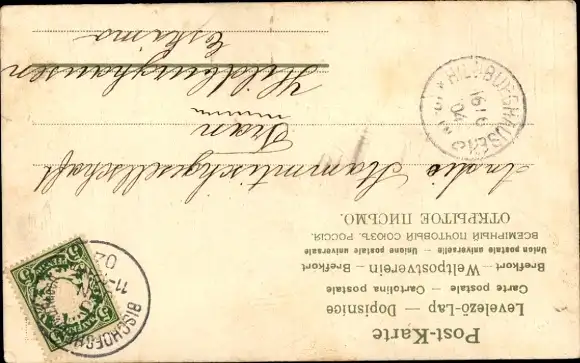 Post-Karte
Levelező-Lap — Dopisnice
Carte postale — Cartolina postale
Brefkort — Weltpostverein — Brefkort
Union postale universelle — Unione postale universale
ВСЕМІРНЫЙ ПОЧТОВЫЙ СОЮЗЪ. РОССІЯ.
ОТКРЫТОЕ ПИСЬМО.
An die Stammtischgesellschaft
Tran
Hildburghausen
Eskimo
HILDBURGHAUSEN
16/6
02
BISCHOFSH
11-12
02
5 PFENNIG 5